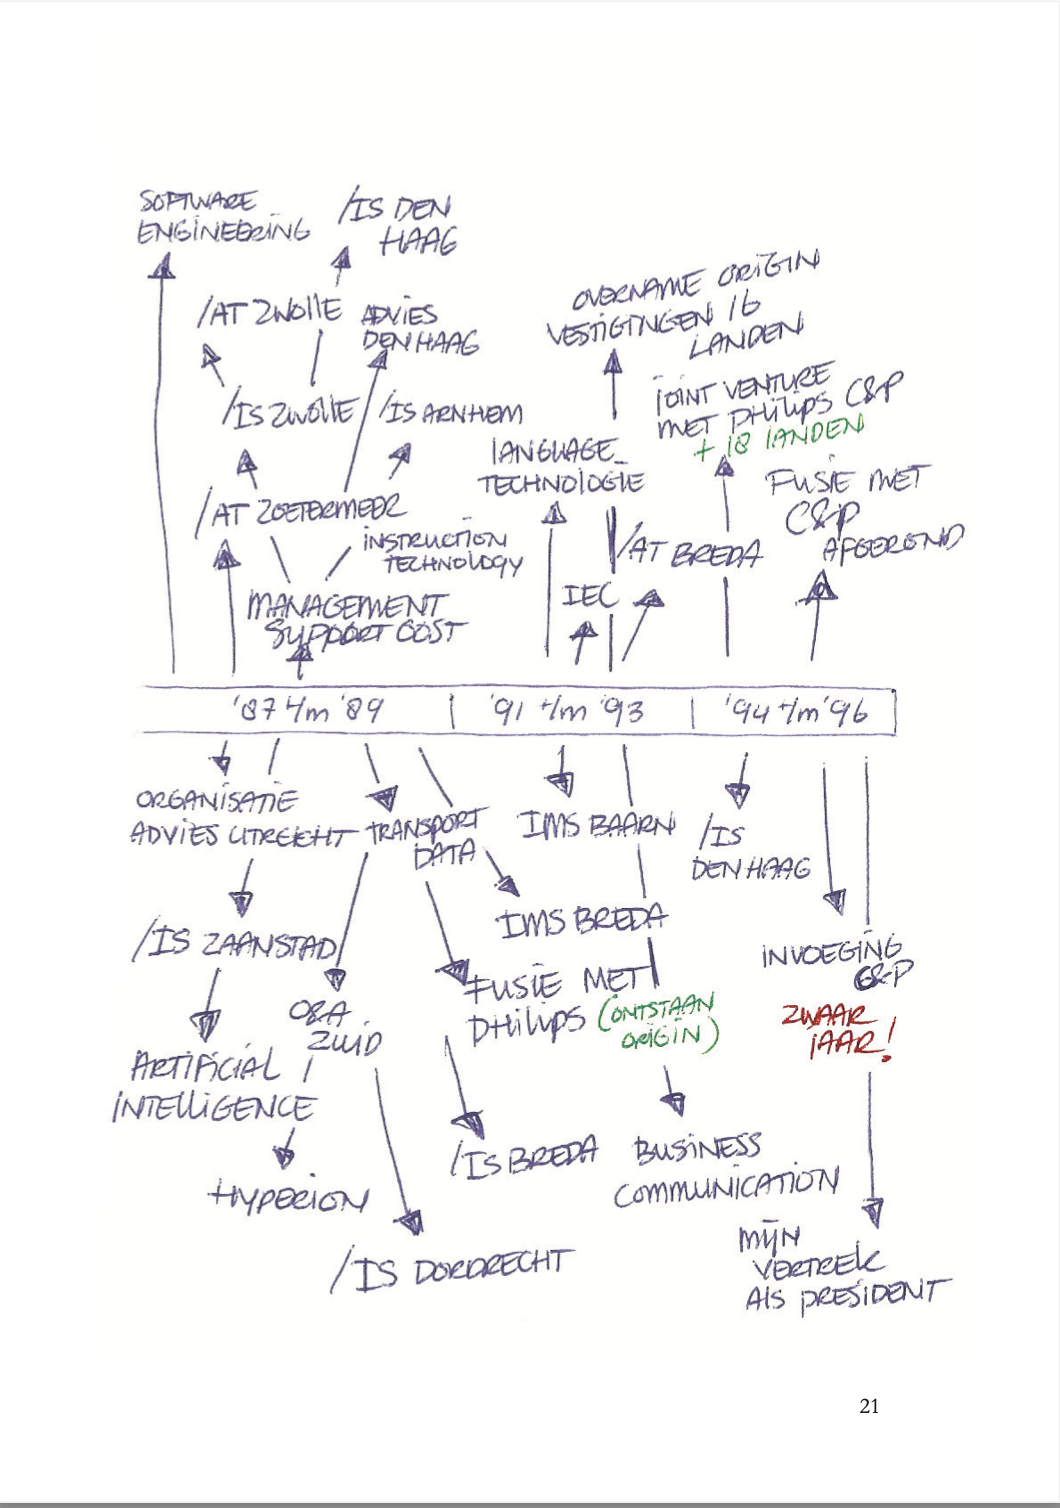 SOFTWARE
ENGINEERING
/IS DEN
HAAG
/AT ZWOLLE
ADVIES
DEN HAAG
/IS ZWOLLE
/IS ARNHEM
/AT ZOETERMEER
INSTRUCTION
TECHNOLOGY
MANAGEMENT
SUPPORT COST
OVERNAME ORIGIN
VESTIGINGEN 16
LANDEN
JOINT VENTURE
MET PHILIPS C&P
+ 18 LANDEN
LANGUAGE
TECHNOLOGIE
FUSIE MET
C&P
AFGEROND
/AT BREDA
IEC
'87 t/m '89 | '91 t/m '93 | '94 t/m '96
ORGANISATIE
ADVIES UTRECHT
TRANSPORT
DATA
IMS BAARN
/IS
DEN HAAG
/IS ZAANSTAD
IMS BREDA
INVOEGING
C&P
ZWAAR
JAAR!
O&A
ZUID
FUSIE MET
PHILIPS (ONTSTAAN
ORIGIN)
ARTIFICIAL
INTELLIGENCE
HYPERION
/IS BREDA
BUSINESS
COMMUNICATION
/IS DORDRECHT
MIJN
VERTREK
ALS PRESIDENT
21